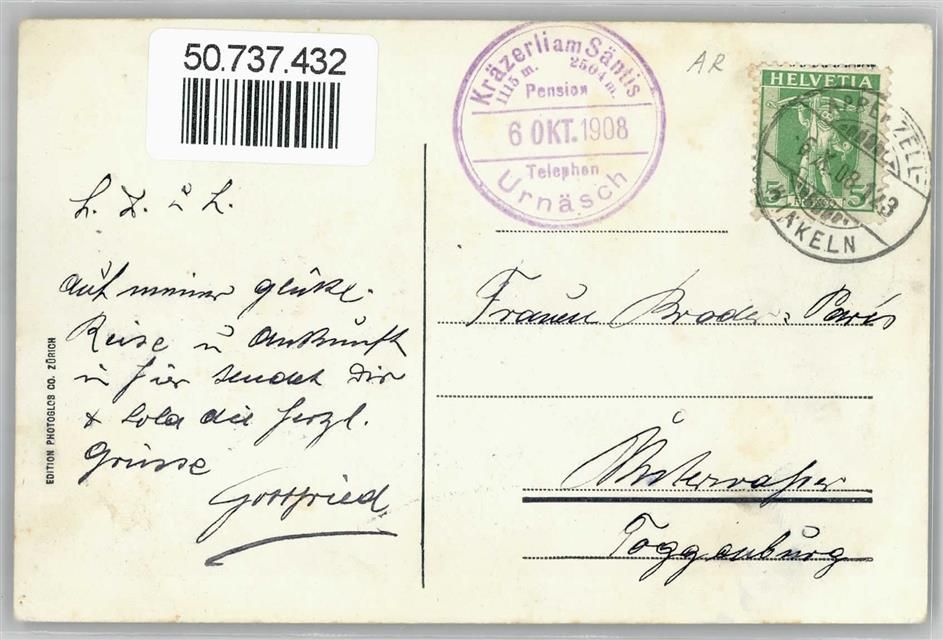 50.737.432
Kräzerli am Säntis
1115 m. 2504 m.
Pension
6 OKT. 1908
Telephon
Urnäsch
AR
HELVETIA
5 5
APPENZELL-
6.X.08.
KAKELN
L. L.
Auf meiner glückl.
Reise u Ankunft
in hier sendet Dir
& Lola die herzl.
Grüsse
Gottfried
Frauen Broder-Paris
Unterwasser
Toggenburg
EDITION PHOTOGLOB CO. ZÜRICH